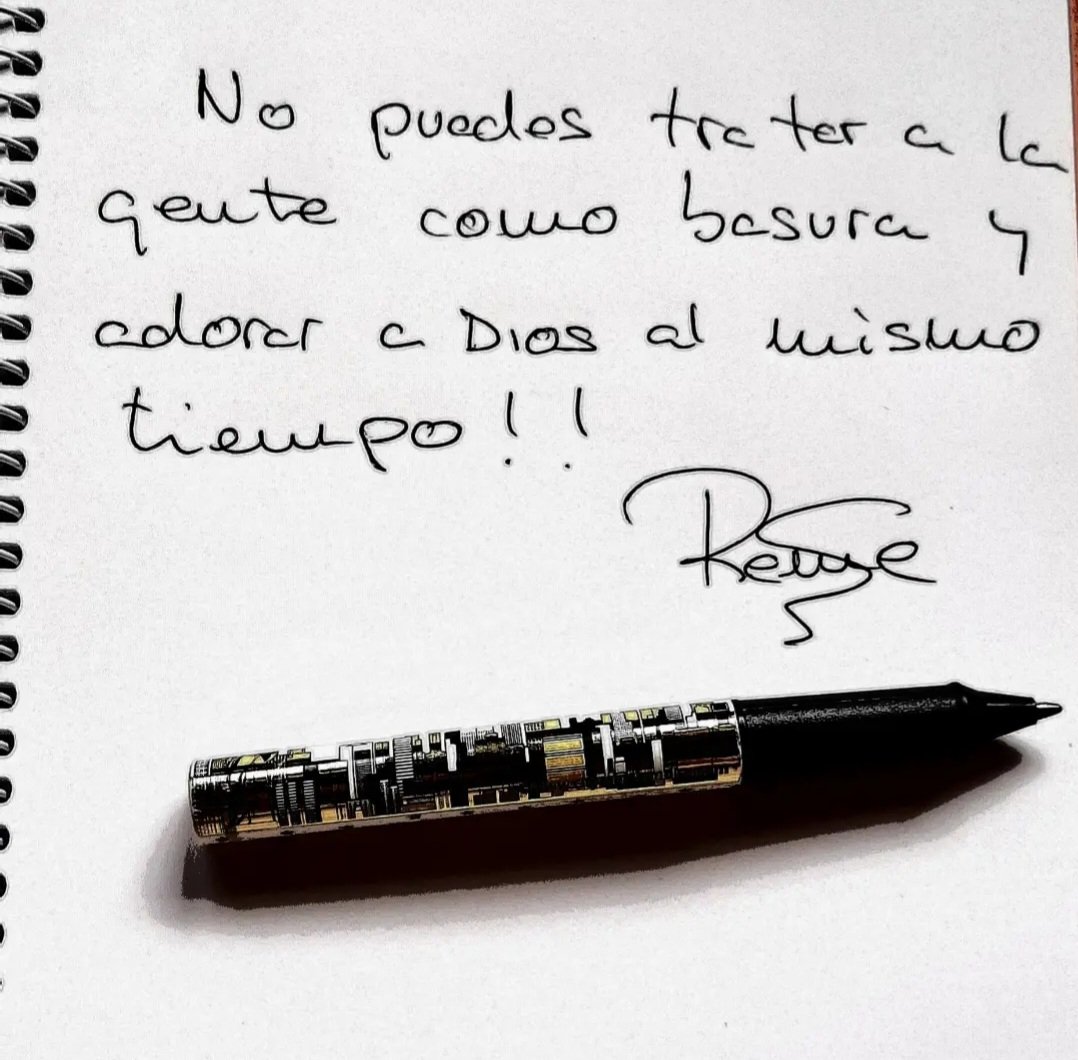 No puedes tratar a la
gente como basura y
adorar a Dios al mismo
tiempo!!